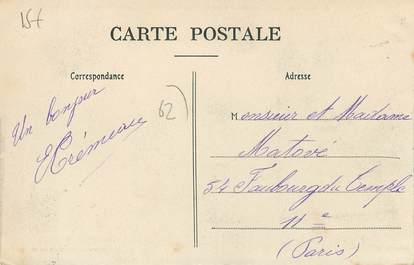 15f
CARTE POSTALE
Correspondance
Adresse
Un bonjour
62
Monsieur et Madame
Matové
54 Faubourg du Temple
11e
(Paris)